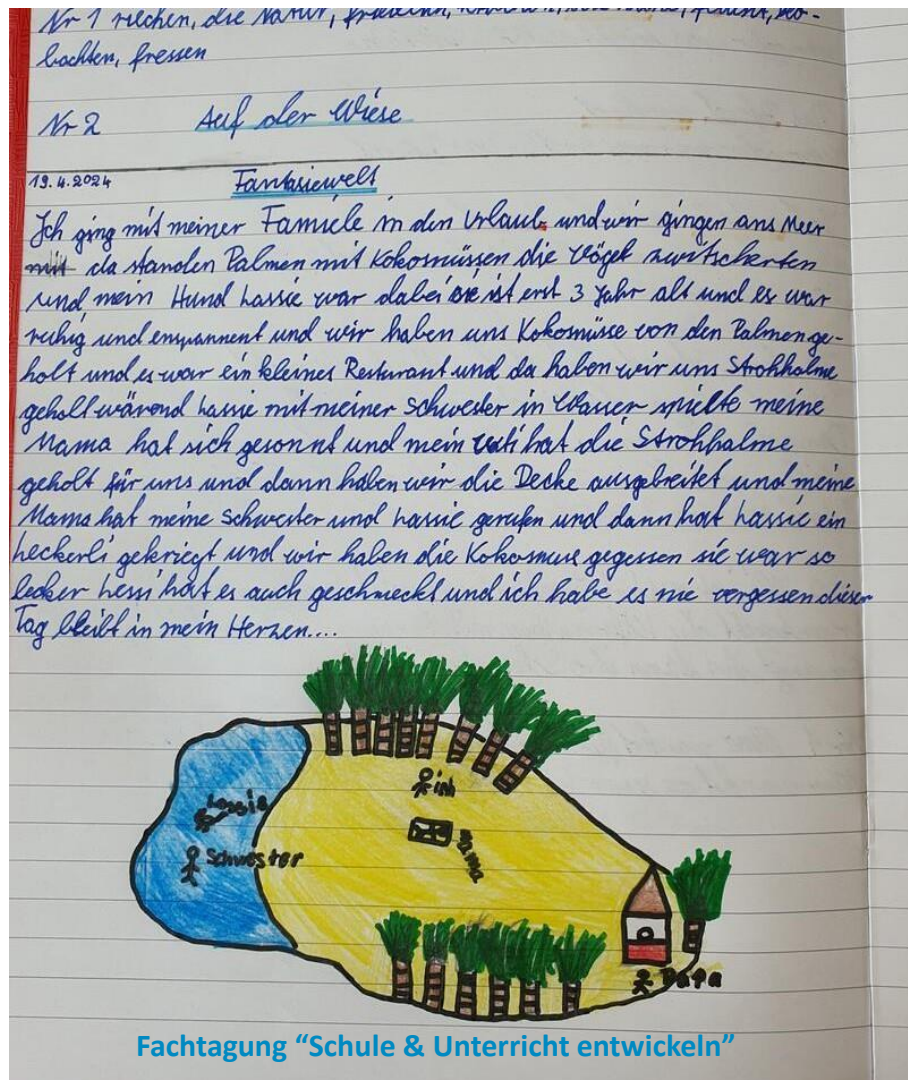 Nr 1 riechen, die Natur,
bachten, fressen
Nr 2 Auf der Wiese
19.4.2024 Fantasiewelt
Ich ging mit meiner Famiele in den Urlaub und wir gingen ans Meer
mit da standen Palmen mit Kokosnüssen die Vögel zwitscherten
und mein Hund Lassie war dabei sie ist erst 3 Jahr alt und es war
ruhig und enspannent und wir haben uns Kokosnüsse von den Palmen ge-
holt und es war ein kleines Resturant und da haben wir uns Strohhalme
geholt wärend Lassie mit meiner Schwester in Wasser spielte meine
Mama hat sich gesonnt und mein Vati hat die Strohhalme
geholt für uns und dann haben wir die Decke ausgebreitet und meine
Mama hat meine Schwester und Lassie gerufen und dann hat Lassie ein
Leckerli gekriegt und wir haben die Kokosnus gegessen sie war so
lecker Lessi hat es auch geschmeckt und ich habe es nie vergessen dieser
Tag bleibt in mein Herzen....
ich
Lassie
Mama
Schwester
Papa
Fachtagung “Schule & Unterricht entwickeln”